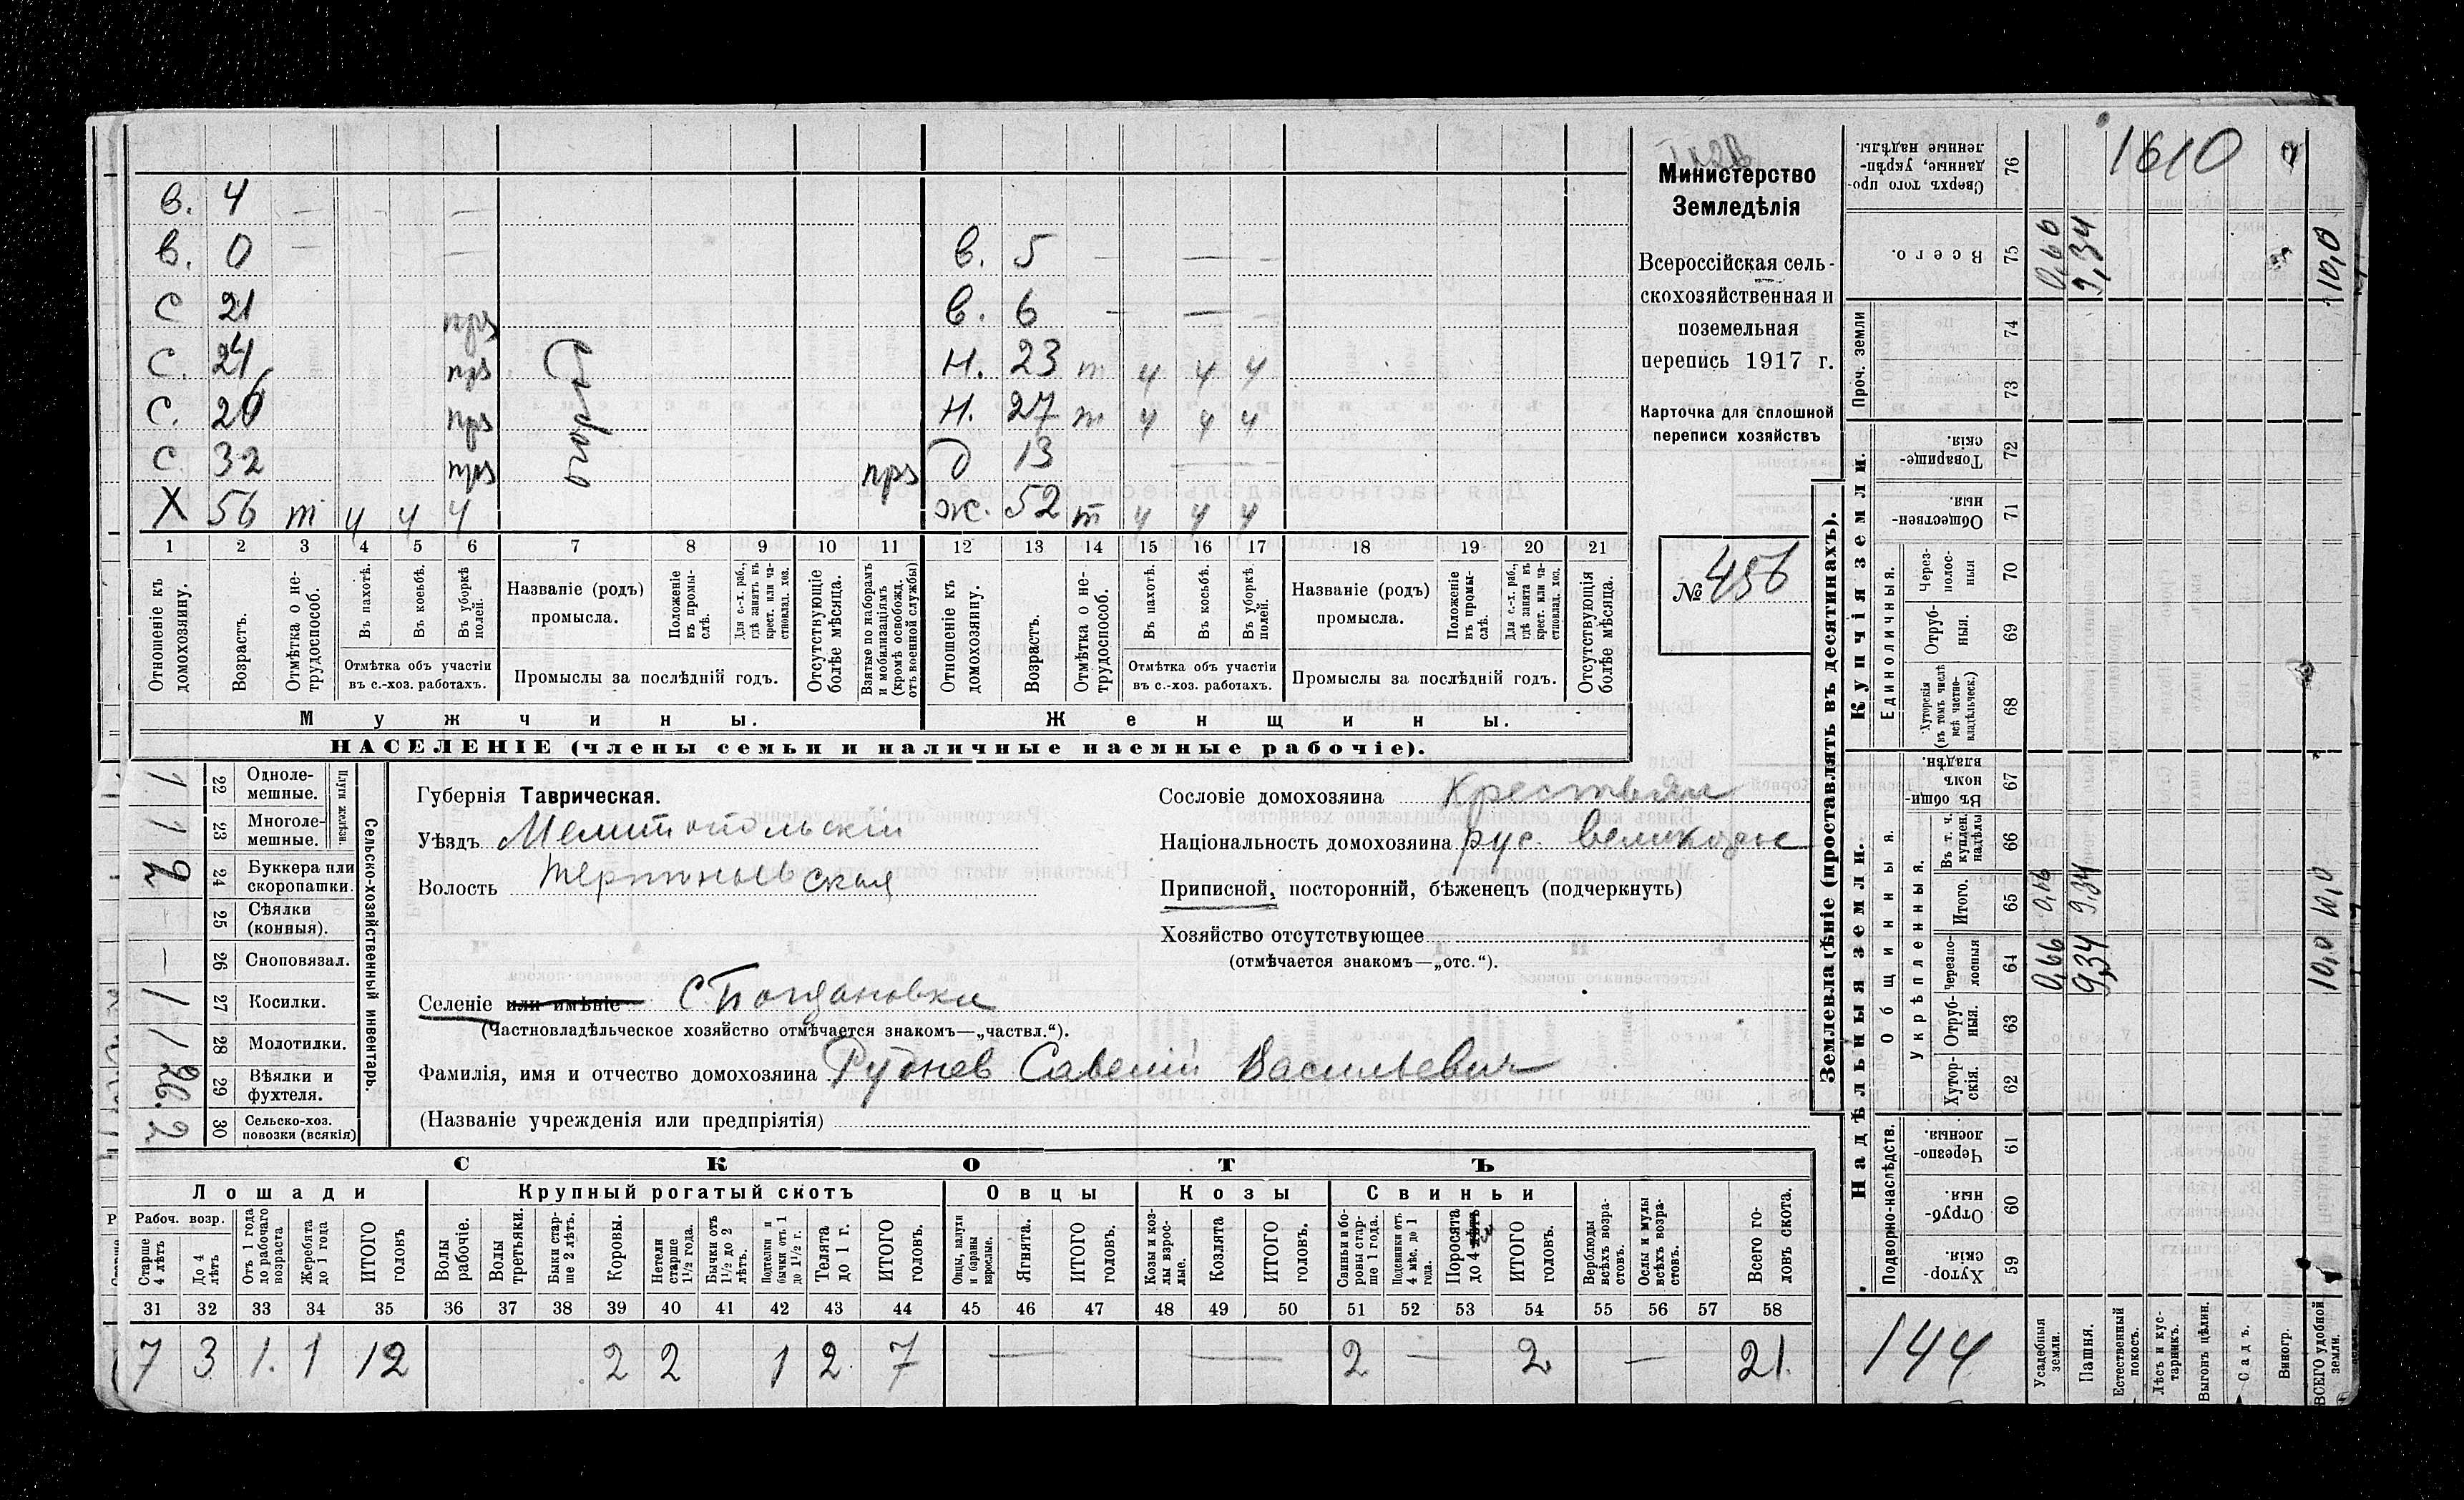 в. 4 — — —
в. 0 — — в. 5 — — — —
С 21 прз в. 6 — — —
С. 24 прз Н. 23 т ч ч ч
С. 26 прз Н. 27 т ч ч ч
С. 32 прз прз д 13 —
Х 56 т ч ч ч ж. 52 т ч ч ч
1 2 3 4 5 6 7 8 9 10 11 12 13 14 15 16 17 18 19 20 21
Отношеніе къ домохозяину.
Возрастъ.
Отмѣтка о не-
трудоспособ.
Въ пахотѣ.
Въ косьбѣ.
Въ уборкѣ полей.
Отмѣтка объ участіи
въ с.-хоз. работахъ.
Названіе (родъ)
промысла.
Положеніе въ промы-
слѣ.
Для с.-х. раб., гдѣ занятъ въ крест. или ча-
стновлад. хоз.
Промыслы за послѣдній годъ.
Отсутствующіе болѣе мѣсяца.
Взятые по наборамъ и мобилизаціямъ (кромѣ освобожд. отъ военной службы)
Отношеніе къ домохозяину.
Возрастъ.
Отмѣтка о не-
трудоспособ.
Въ пахотѣ.
Въ косьбѣ.
Въ уборкѣ полей.
Отмѣтка объ участіи
въ с.-хоз. работахъ.
Названіе (родъ)
промысла.
Положеніе въ промы-
слѣ.
Для с.-х. раб., гдѣ занята въ крест. или ча-
стновлад. хоз.
Промыслы за послѣдній годъ.
Отсутствующія болѣе мѣсяца.
Мужчины. Женщины.
НАСЕЛЕНІЕ (члены семьи и наличные наемные рабочіе).
Министерство
Земледѣлія
Всероссійская сель-
скохозяйственная и
поземельная
перепись 1917 г.
Карточка для сплошной
переписи хозяйствъ
№ 456
Сельско-хозяйственный инвентарь.
Плуги желѣзн.
1 22 Одноле-
мешные.
1 23 Многоле-
мешные.
2 24 Буккера или
скоропашки.
25 Сѣялки
(конныя).
— 26 Сноповязал.
1 27 Косилки.
1 28 Молотилки.
29 Вѣялки и
фухтеля.
2 30 Сельско-хоз.
повозки (всякія)
Губернія Таврическая.
Уѣздъ Мелитопольскій
Волость Терпеньевская
Селеніе или имѣніе С. Богдановки
(Частновладѣльческое хозяйство отмѣчается знакомъ—„частвл.“).
Фамилія, имя и отчество домохозяина Руднев Савелий Васильевич
(Названіе учрежденія или предпріятія)
Сословіе домохозяина Крестьян
Національность домохозяина рус. великорос
Приписной, посторонній, бѣженецъ (подчеркнуть)
Хозяйство отсутствующее
(отмѣчается знакомъ—„отс.“).
СКОТЪ
Лошади Крупный рогатый скотъ Овцы Козы Свиньи
Рабоч. возр.
Старше 4 лѣтъ
До 4 лѣтъ
Отъ 1 года до рабочаго возраста
Жеребята до 1 года
ИТОГО головъ
Волы рабочіе.
Волы третьяки.
Быки стар-
ше 2 лѣтъ.
Коровы.
Нетели старше 1½ года.
Бычки отъ 1½ до 2 лѣтъ.
Подтелки и бычки отъ 1 до 1½ г.
Телята до 1 г.
ИТОГО головъ.
Овцы, валухи и бараны взрослые.
Ягнята.
ИТОГО головъ.
Козы и коз-
лы взрос-
лые.
Козлята
ИТОГО головъ.
Свиньи и бо-
ровы стар-
ше 1 года.
Подсвинки отъ 4 мѣс. до 1 года.
Поросята до 4 лѣтъ
ИТОГО головъ.
Верблюды всѣхъ возра-
стовъ.
Ослы и мулы всѣхъ возра-
стовъ.
Всего го-
ловъ скота.
31 32 33 34 35 36 37 38 39 40 41 42 43 44 45 46 47 48 49 50 51 52 53 54 55 56 57 58
7 3 1. 1 12 2 2 1 2 7 — — 2 — 2 — 21.
Землевладѣніе (проставлять въ десятинахъ).
Надѣльныя земли. Купчія земли.
Проч. земли
Подворно-наслѣдств.
Общинныя.
Укрѣпленныя.
Единоличныя.
Сверхъ того про-
данные, укрѣп-
ленные надѣлы. 76
Всего. 75 0,66 9,34 10,0
74
73
Товарище-
скія. 72
Обществен-
ныя. 71
Через-
полос-
ныя 70
Отруб-
ныя. 69
Хуторскія (въ томъ числѣ всѣ частно-
владѣльческ.) 68
Въ общин-
номъ владѣн. 67
Въ т. ч. куплен. надѣлы 66
Итого. 65 0,66 9,34 10,0
Черезпо-
лосныя 64 0,66 9,34 10,0
Отруб-
ныя. 63
Хутор-
скія. 62
Черезпо-
лосныя. 61
Отруб-
ныя. 60
Хутор-
скія. 59
1610
144
Усадебныя земли.
Пашня.
Естественный покосъ.
Лѣсъ и кус-
тарникъ.
Выгонъ цѣлин.
Садъ.
Виногр.
ВСЕГО удобной земли.